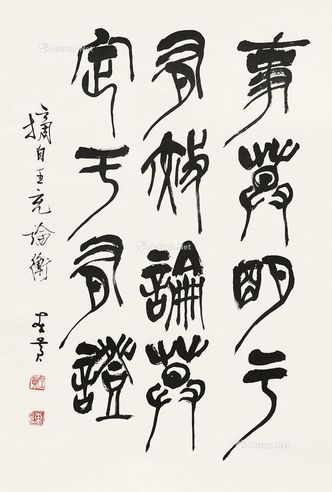 事莫明于
有效論莫
定于有證
摘自王充論衡
Artron.Net